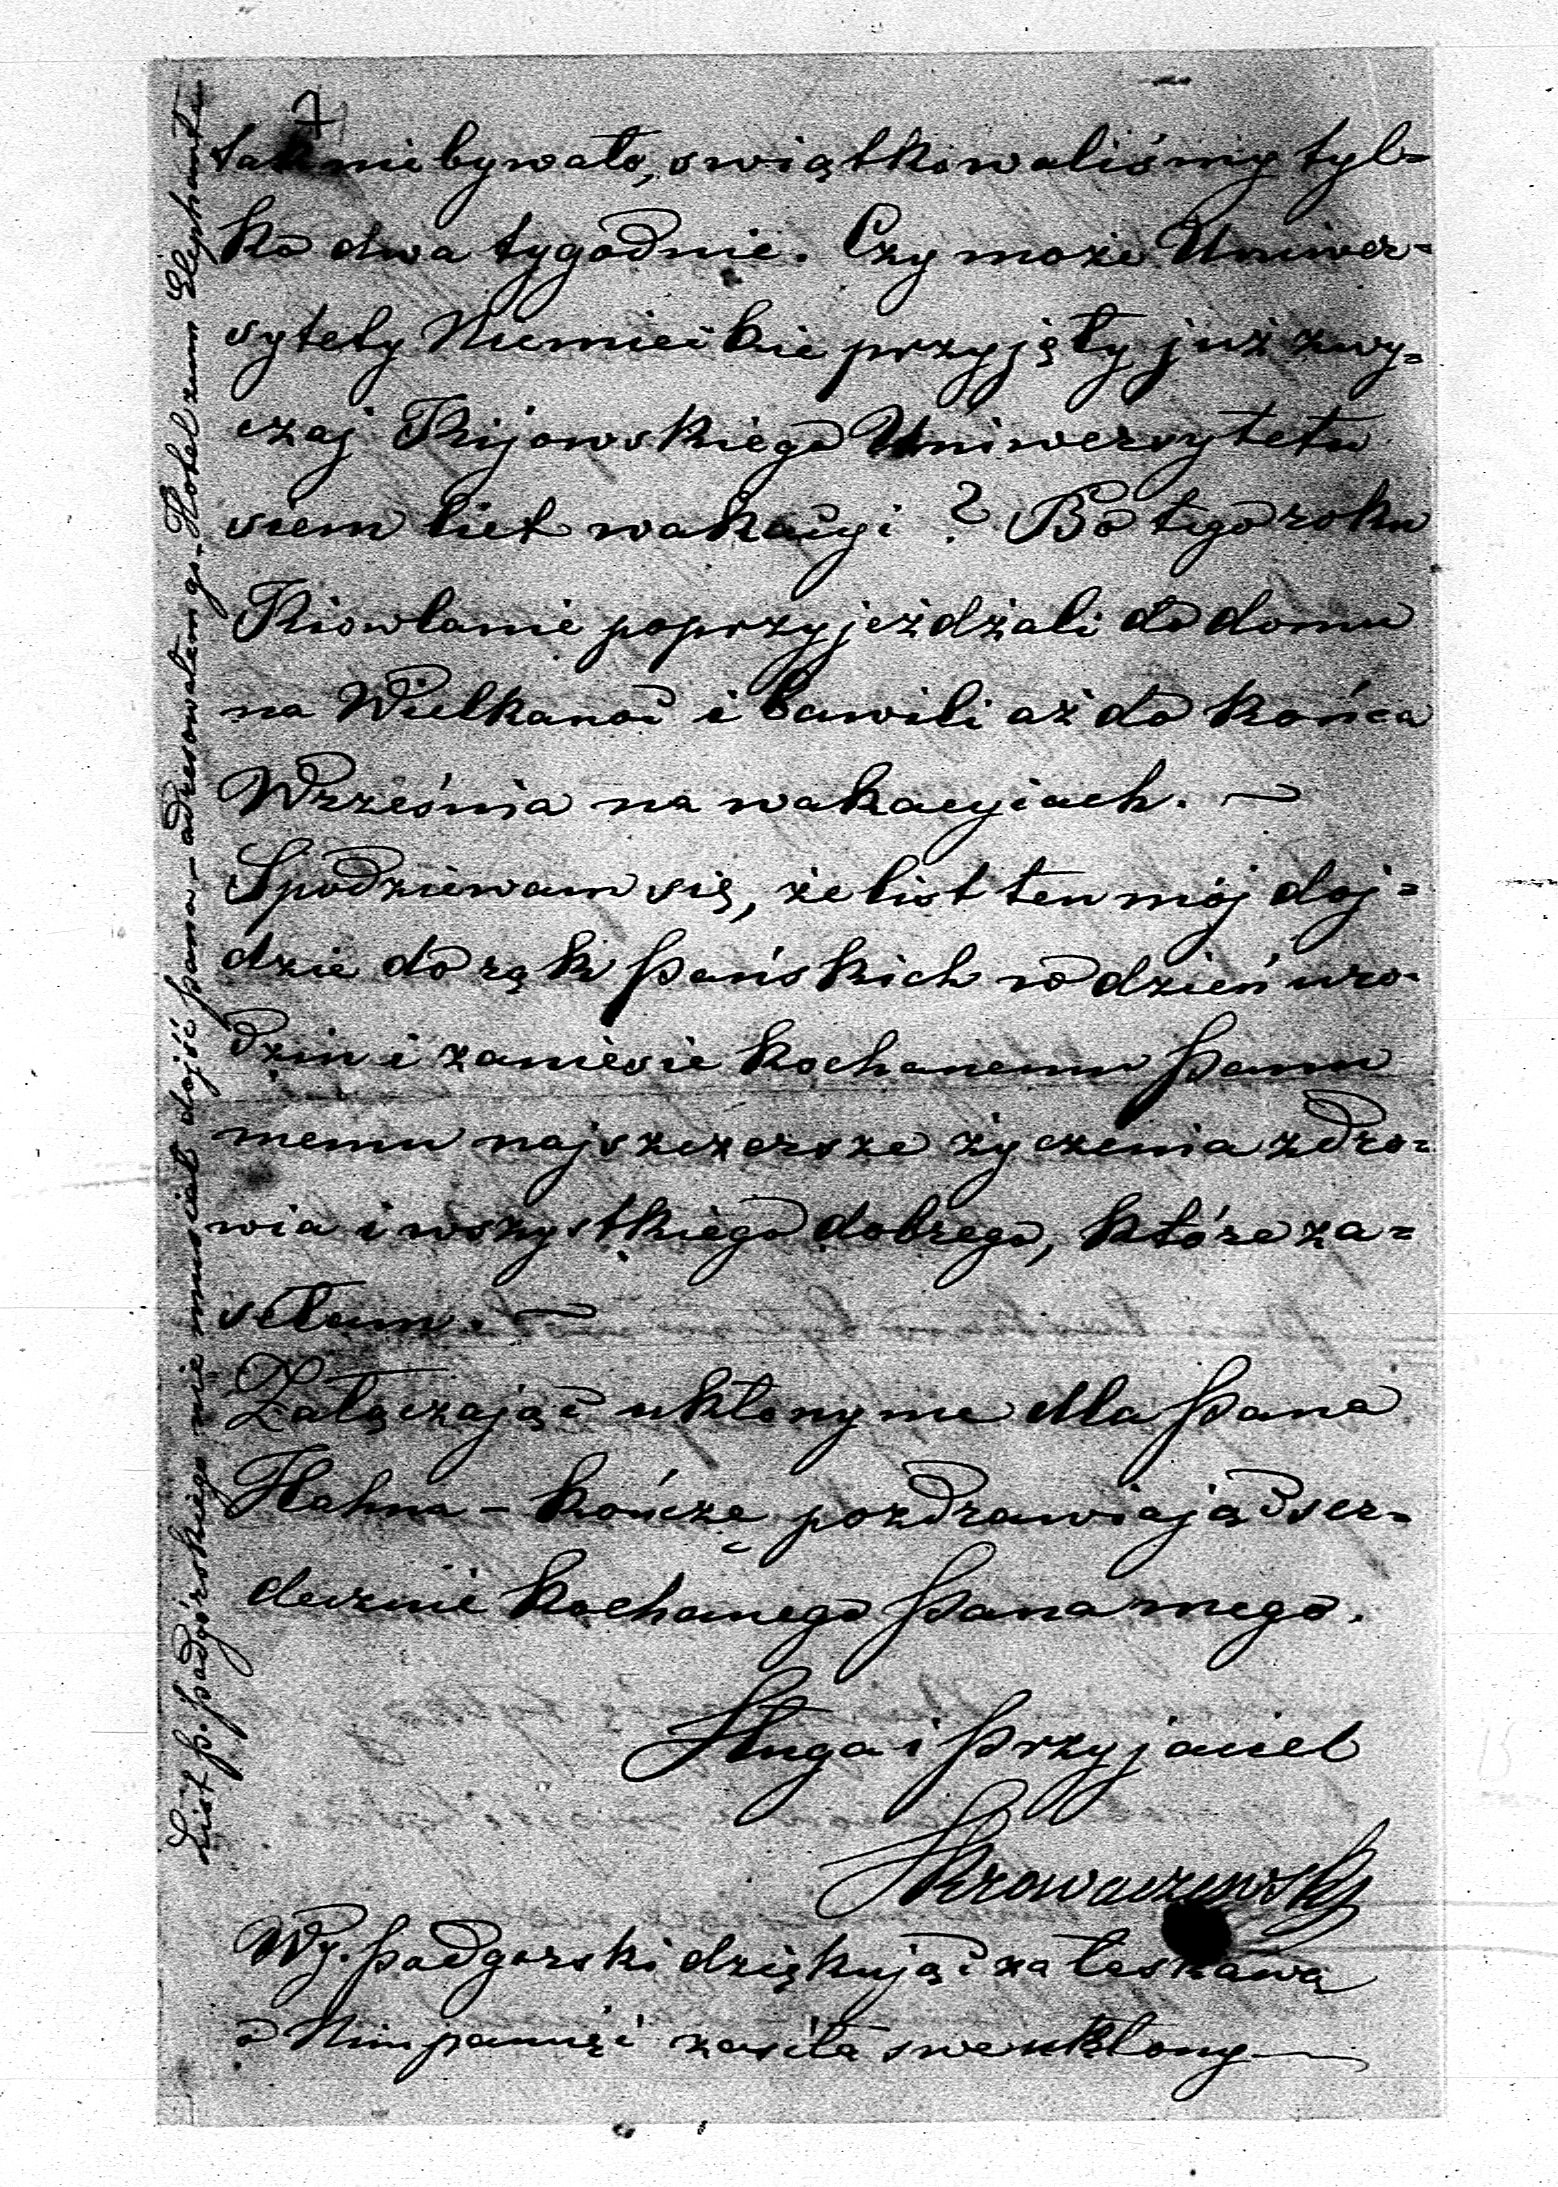 7
tak nie bywało, swiątkowaliśmy tyl=
ko dwa tygodnie. Czy może Uniwer=
sytety Niemieckie przyjęły już zwy=
czaj Kijowskiego Uniwersytetu
siem liet wakacyi? Bo tego roku
Kiowlanie poprzyjeżdżali do domu
na Wielkanoc i bawili aż do końca
Września na wakacyiach. —
Spodziewam się, że list ten mój doj=
dzie do rąk Pańskich w dzień uro=
dzin i zaniesie kochanemu Panu
memu najszczersze życzenia zdro=
wia i wszystkiego dobrego, które za=
sełam. —
Załączając ukłony me dla Pana
Hahna – kończę pozdrawiając ser=
decznie kochanego Pana mego.
Sługa i Przyjaciel
Skrowaczewski
Wy. Podgorski dziękując za łaskawą
o Nim pamięć zasiła swe ukłony —
List P. Podgórskiego nie musiał dojść Pana – adresowałem go. Hotel zum Elephanten